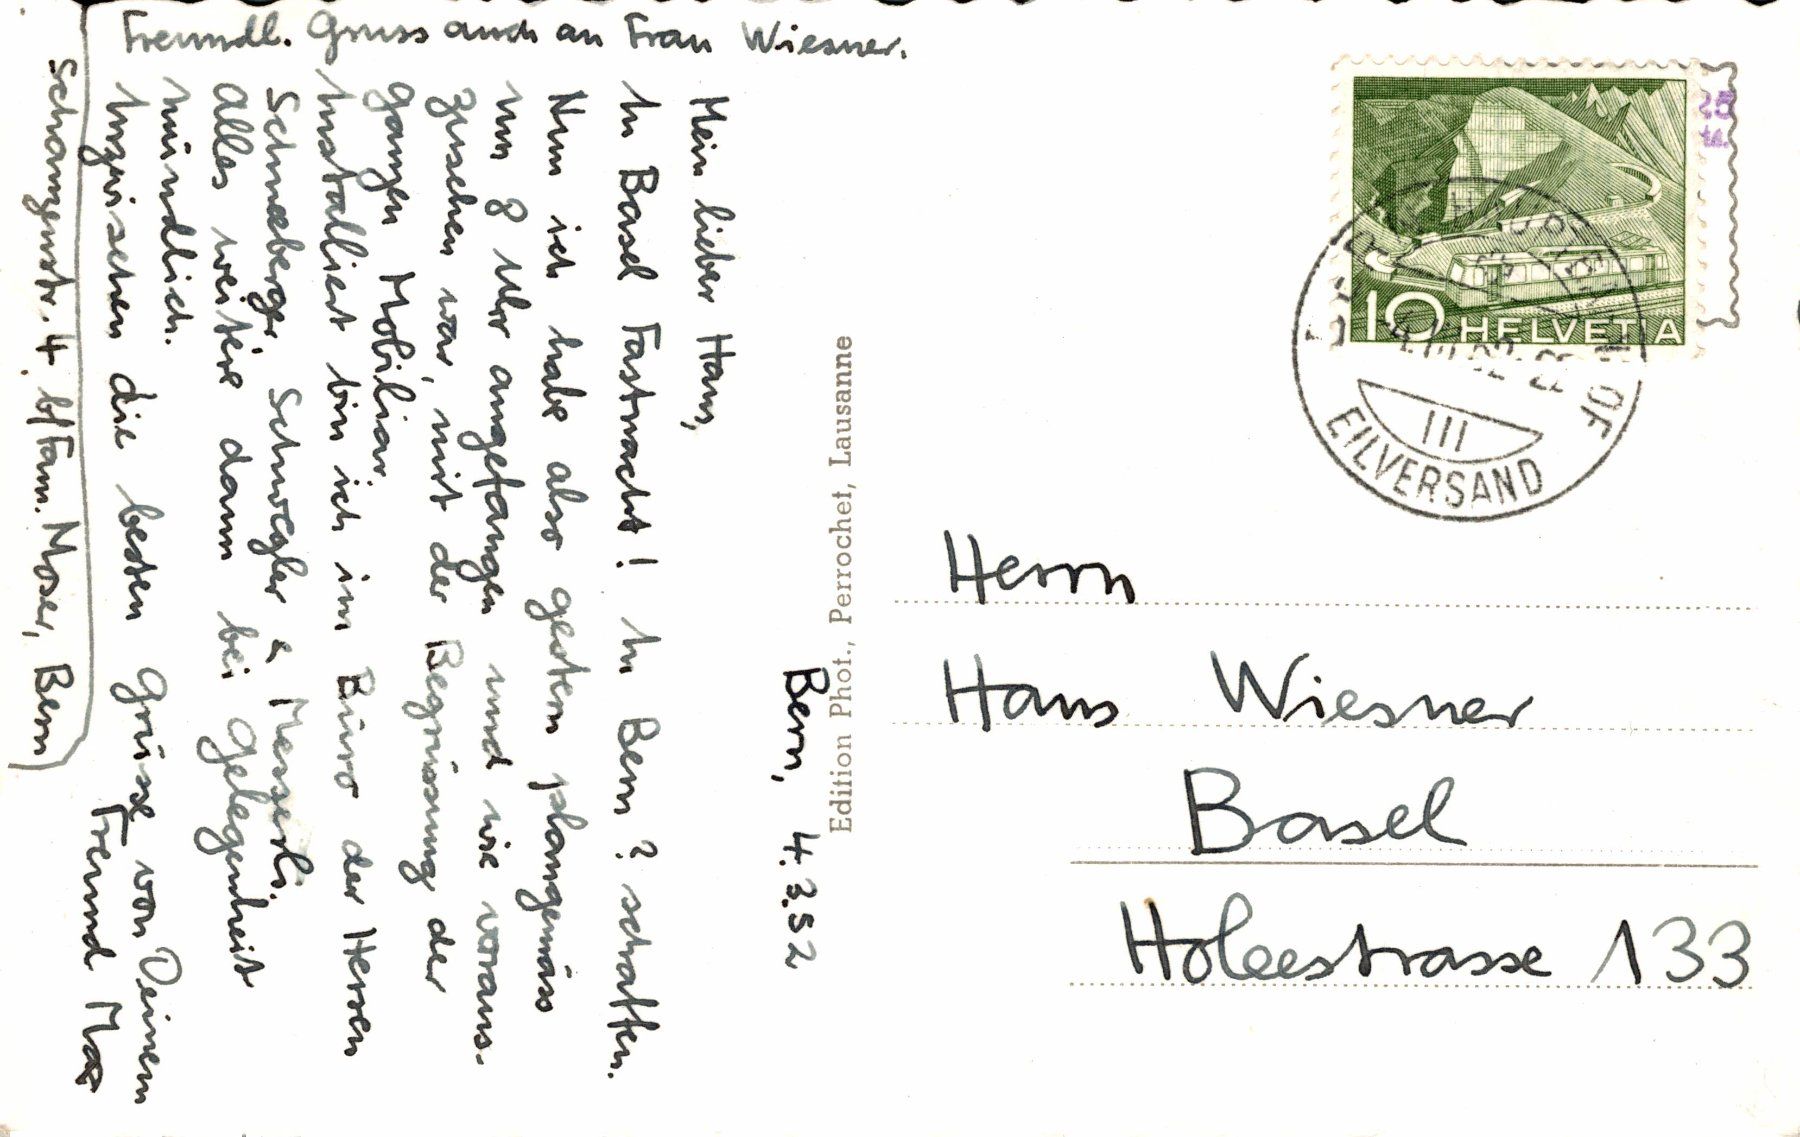 Freundl. Gruss auch an Frau Wiesner.
Bern, 4.3.52
Mein lieber Hans,
In Basel Fastnacht! In Bern? schaffen.
Nun ich habe also gestern plangemäss
um 8 Uhr angefangen und wie voraus-
zusehen war, mit der Begrüssung der
ganzen Mobiliar.
Installiert bin ich im Büro der Herren
Schneeberger, Schwegler & Messerli.
Alles weitere dann bei Gelegenheit
mündlich.
Inzwischen die besten Grüsse von Deinem
Freund Max
Schanzenstr. 4 b/Fam. Moser, Bern
Edition Phot., Perrochet, Lausanne
25
ts.
10 HELVETIA
III
EILVERSAND
Herrn
Hans Wiesner
Basel
Holeestrasse 133